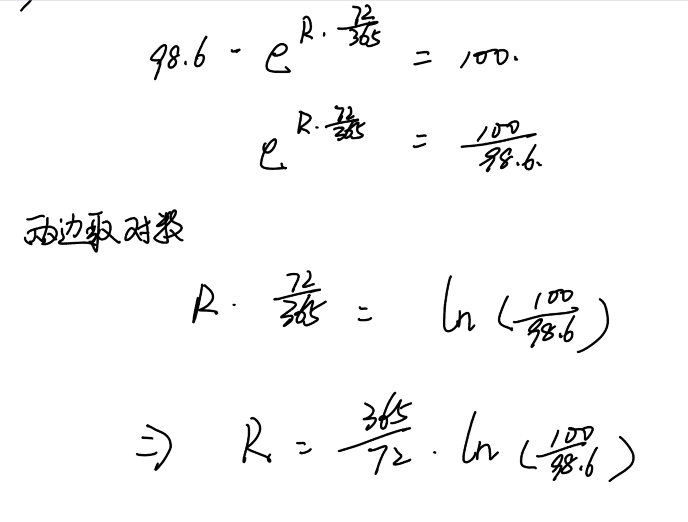 98.6 · e^{R · \frac{72}{365}} = 100.
e^{R · \frac{72}{365}} = \frac{100}{98.6.}
两边取对数
R · \frac{72}{365} = ln (\frac{100}{98.6})
⇒ R = \frac{365}{72} · ln (\frac{100}{98.6})